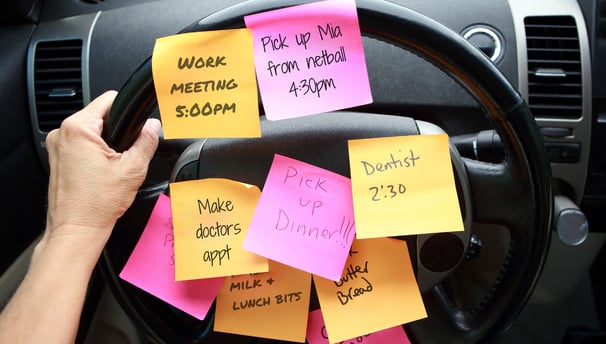 WORK
MEETING
5:00PM
Pick up Mia
from netball
4:30pm
Dentist
2:30
Make
doctors
appt
Pick
up
Dinner!!!
MILK &
LUNCH BITS
Butter
Bread